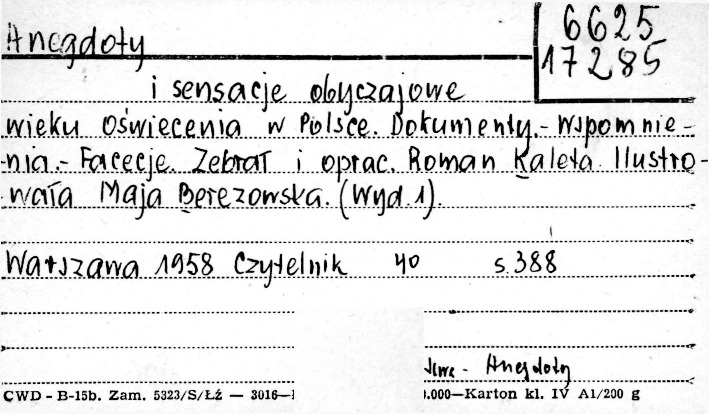 6625
17285
Anegdoty
i sensacje obyczajowe
wieku Oświecenia w Polsce. Dokumenty.- Wspomnie-
-nia.- Facecje. Zebrał i oprac. Roman Kaleta. Ilustro-
-wała Maja Berezowska. (Wyd. 1).
Warszawa 1958 Czytelnik 40 s. 388
- Anegdoty
CWD - B-15b. Zam. 5323/S/Łź — 3016— .000—Karton kl. IV A1/200 g